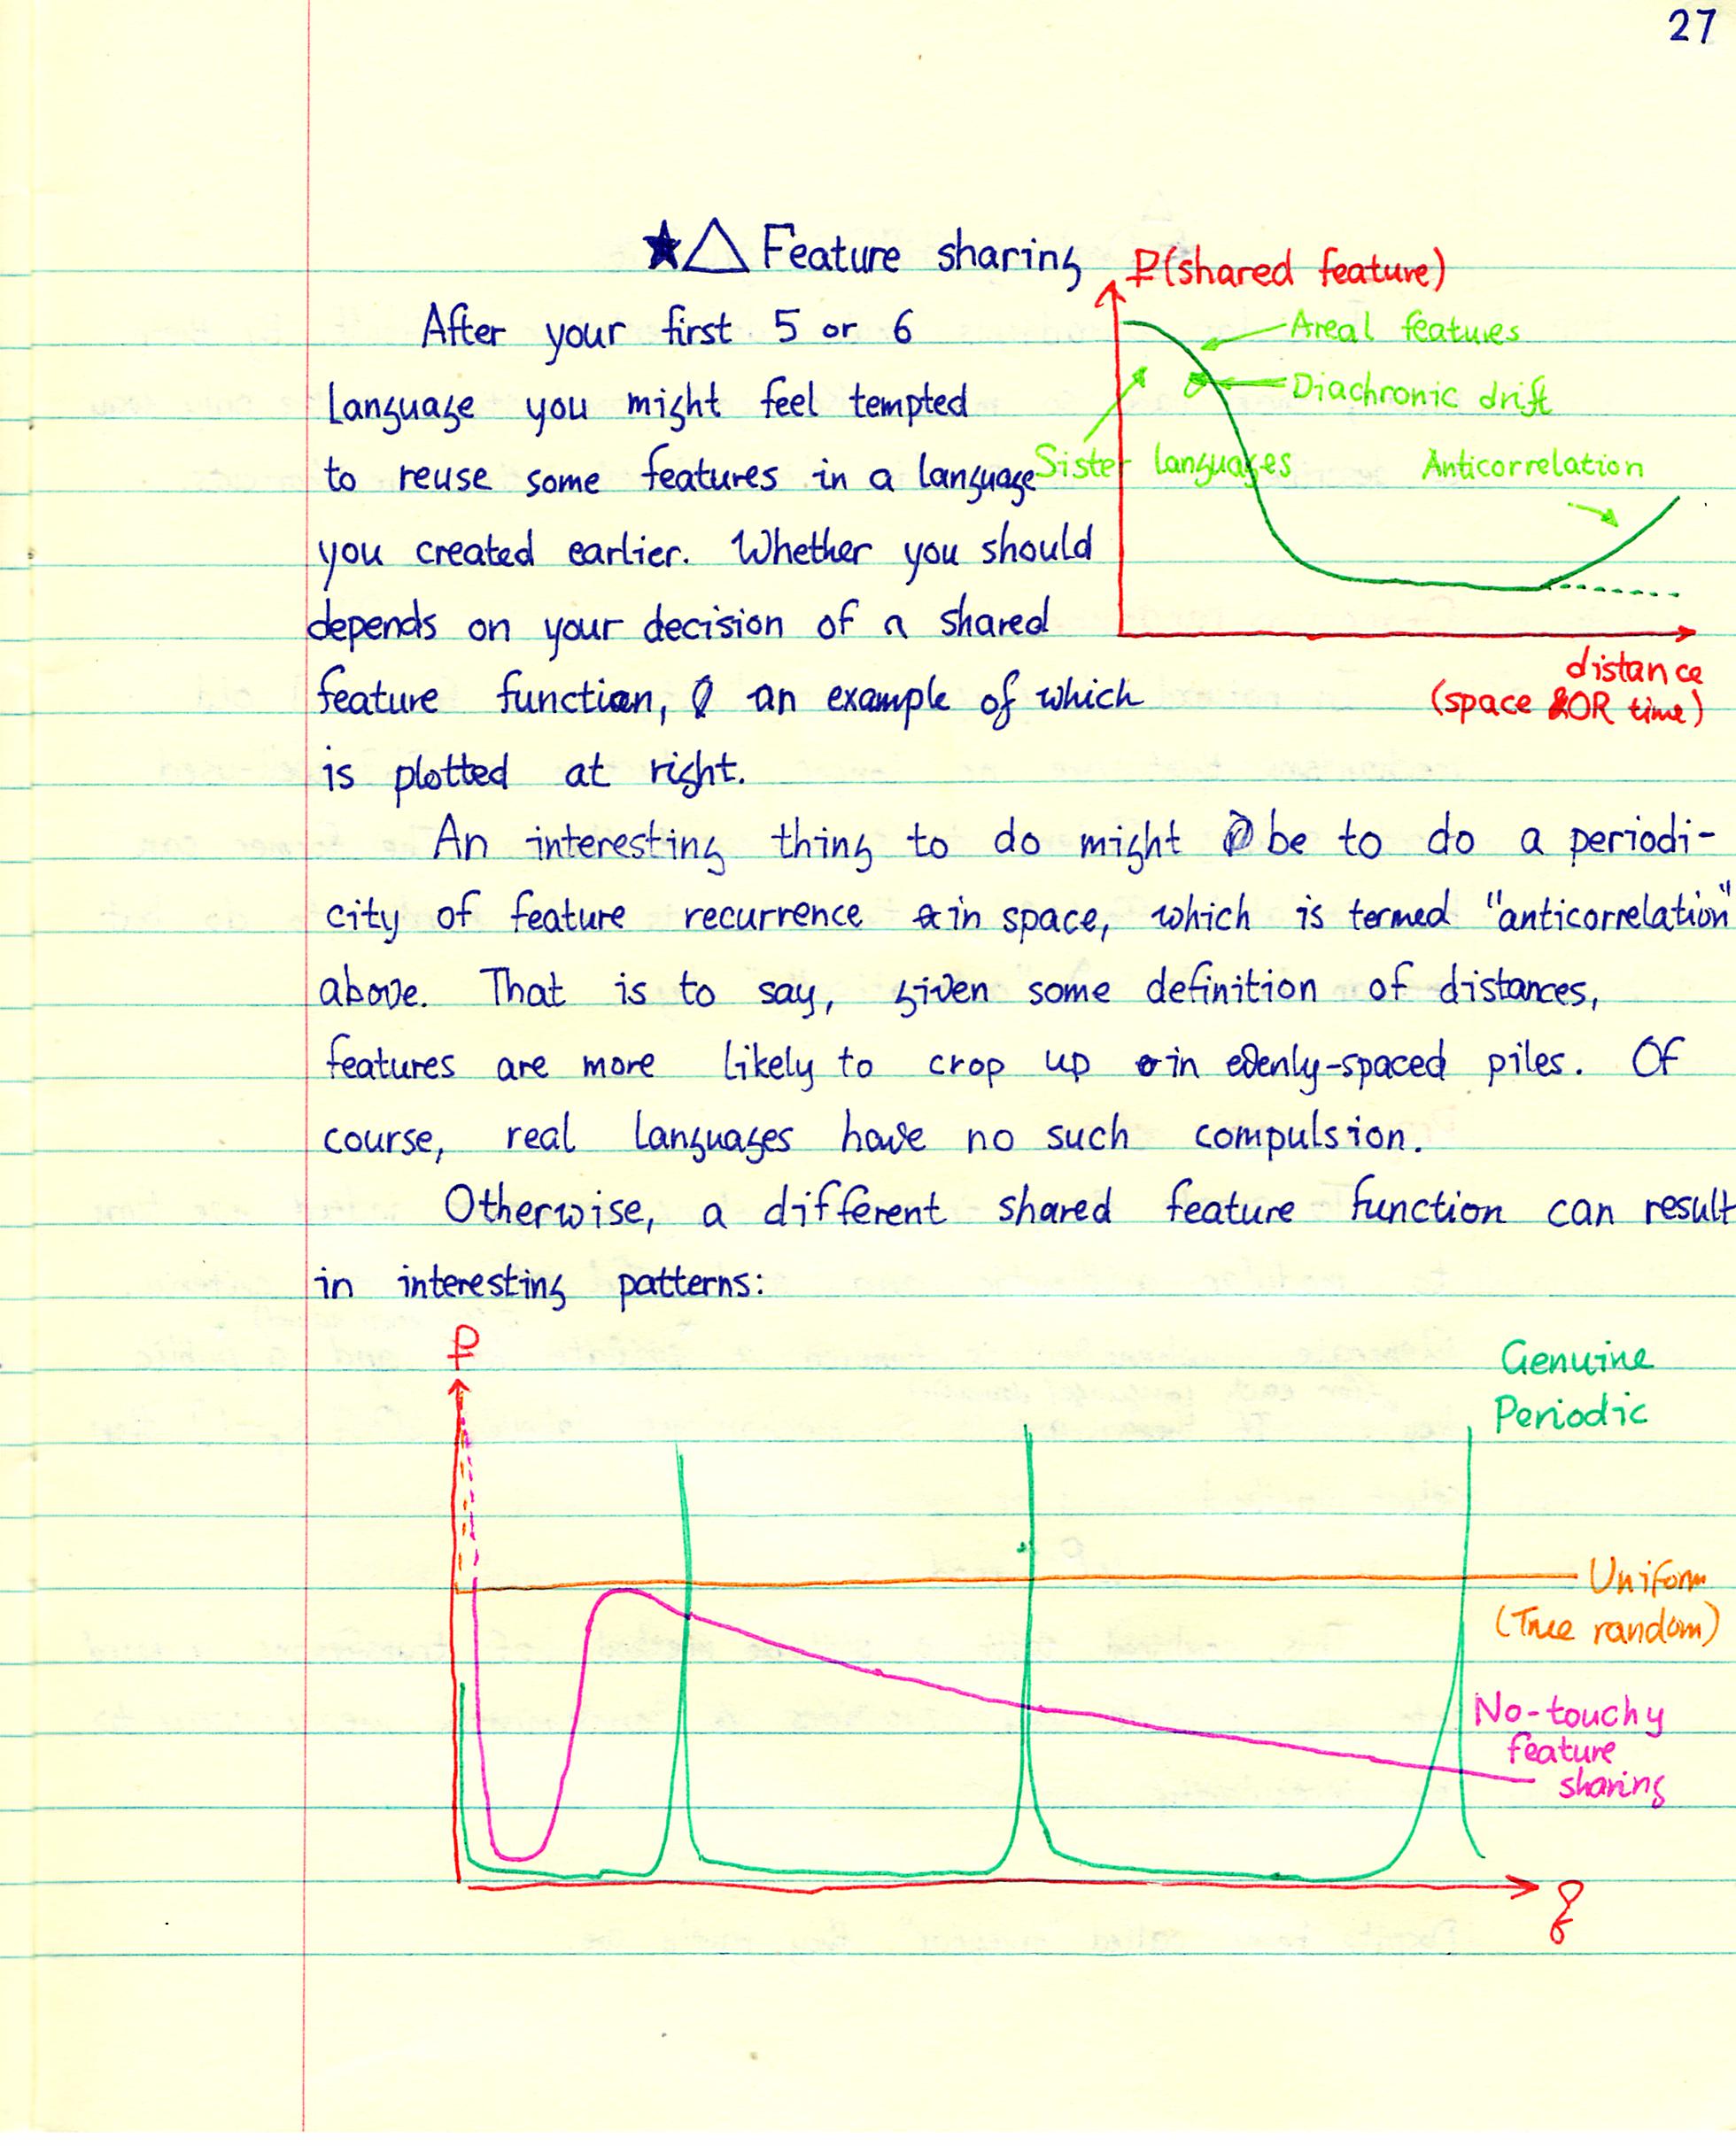 27
★△ Feature sharing
P(shared feature)
After your first 5 or 6
Areal features
Language you might feel tempted
Diachronic drift
to reuse some features in a language
Sister languages
Anticorrelation
you created earlier. Whether you should
depends on your decision of a shared
distance
feature function, an example of which
(space &OR time)
is plotted at right.
An interesting thing to do might be to do a periodi-
city of feature recurrence in space, which is termed "anticorrelation"
above. That is to say, given some definition of distances,
features are more likely to crop up in evenly-spaced piles. Of
course, real languages have no such compulsion.
Otherwise, a different shared feature function can result
in interesting patterns:
P
Genuine
Periodic
Uniform
(True random)
No-touchy
feature
sharing